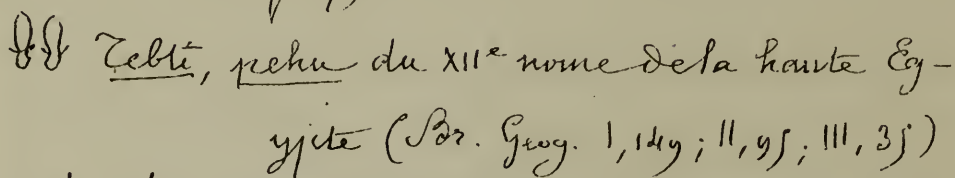 Tebti, pehu du XIIe nome de la haute Eg-
ypte (Br. Geog. I, ; II, ; III, )